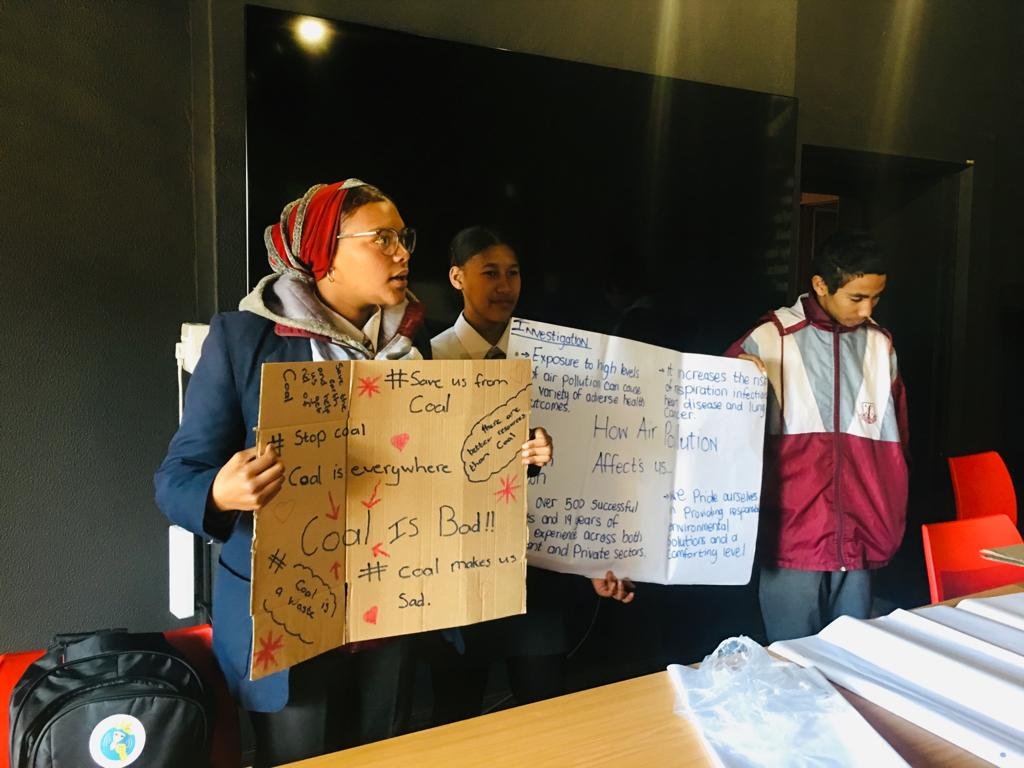 #Save us from
Coal
Coal
# Stop coal
there are
better resources
than Coal
Coal is everywhere
Coal Is Bad!!
#
Coal
is
a waste
# Coal makes us
Sad.
Investigation
→ Exposure to high levels
of air pollution can cause
variety of adverse health
utcomes.
→ It increases the ris
respiration infectio
disease and lung
Cancer.
How Air Pollution
Affect's us...
over 500 Successful
s and 19 years of
experience across both
nt and Private sectors.
→ We Pride ourselves
Providing responsi
nvironmental
Solutions and a
Comforting level